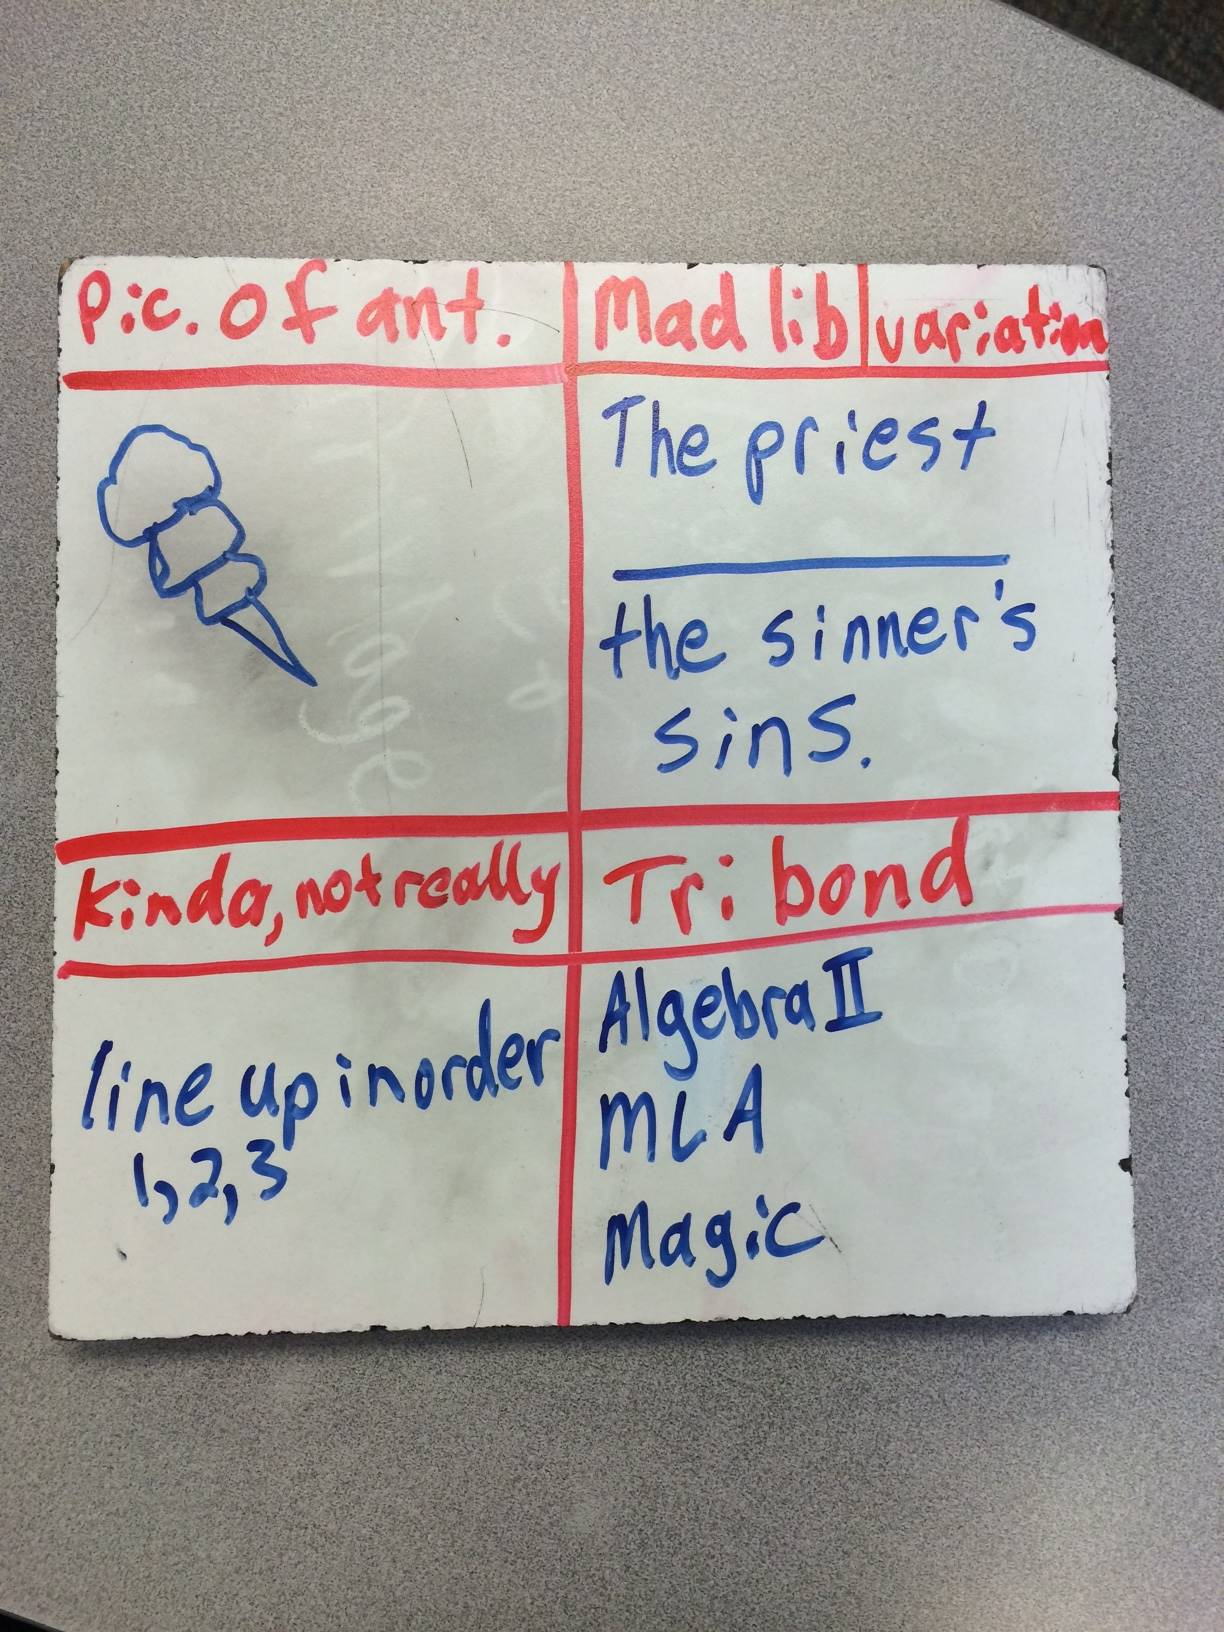 Pic. of ant.
Mad lib variation
The priest
the sinner's
sins.
Kinda, not really
Tribond
line up in order
1, 2, 3
Algebra II
MLA
Magic